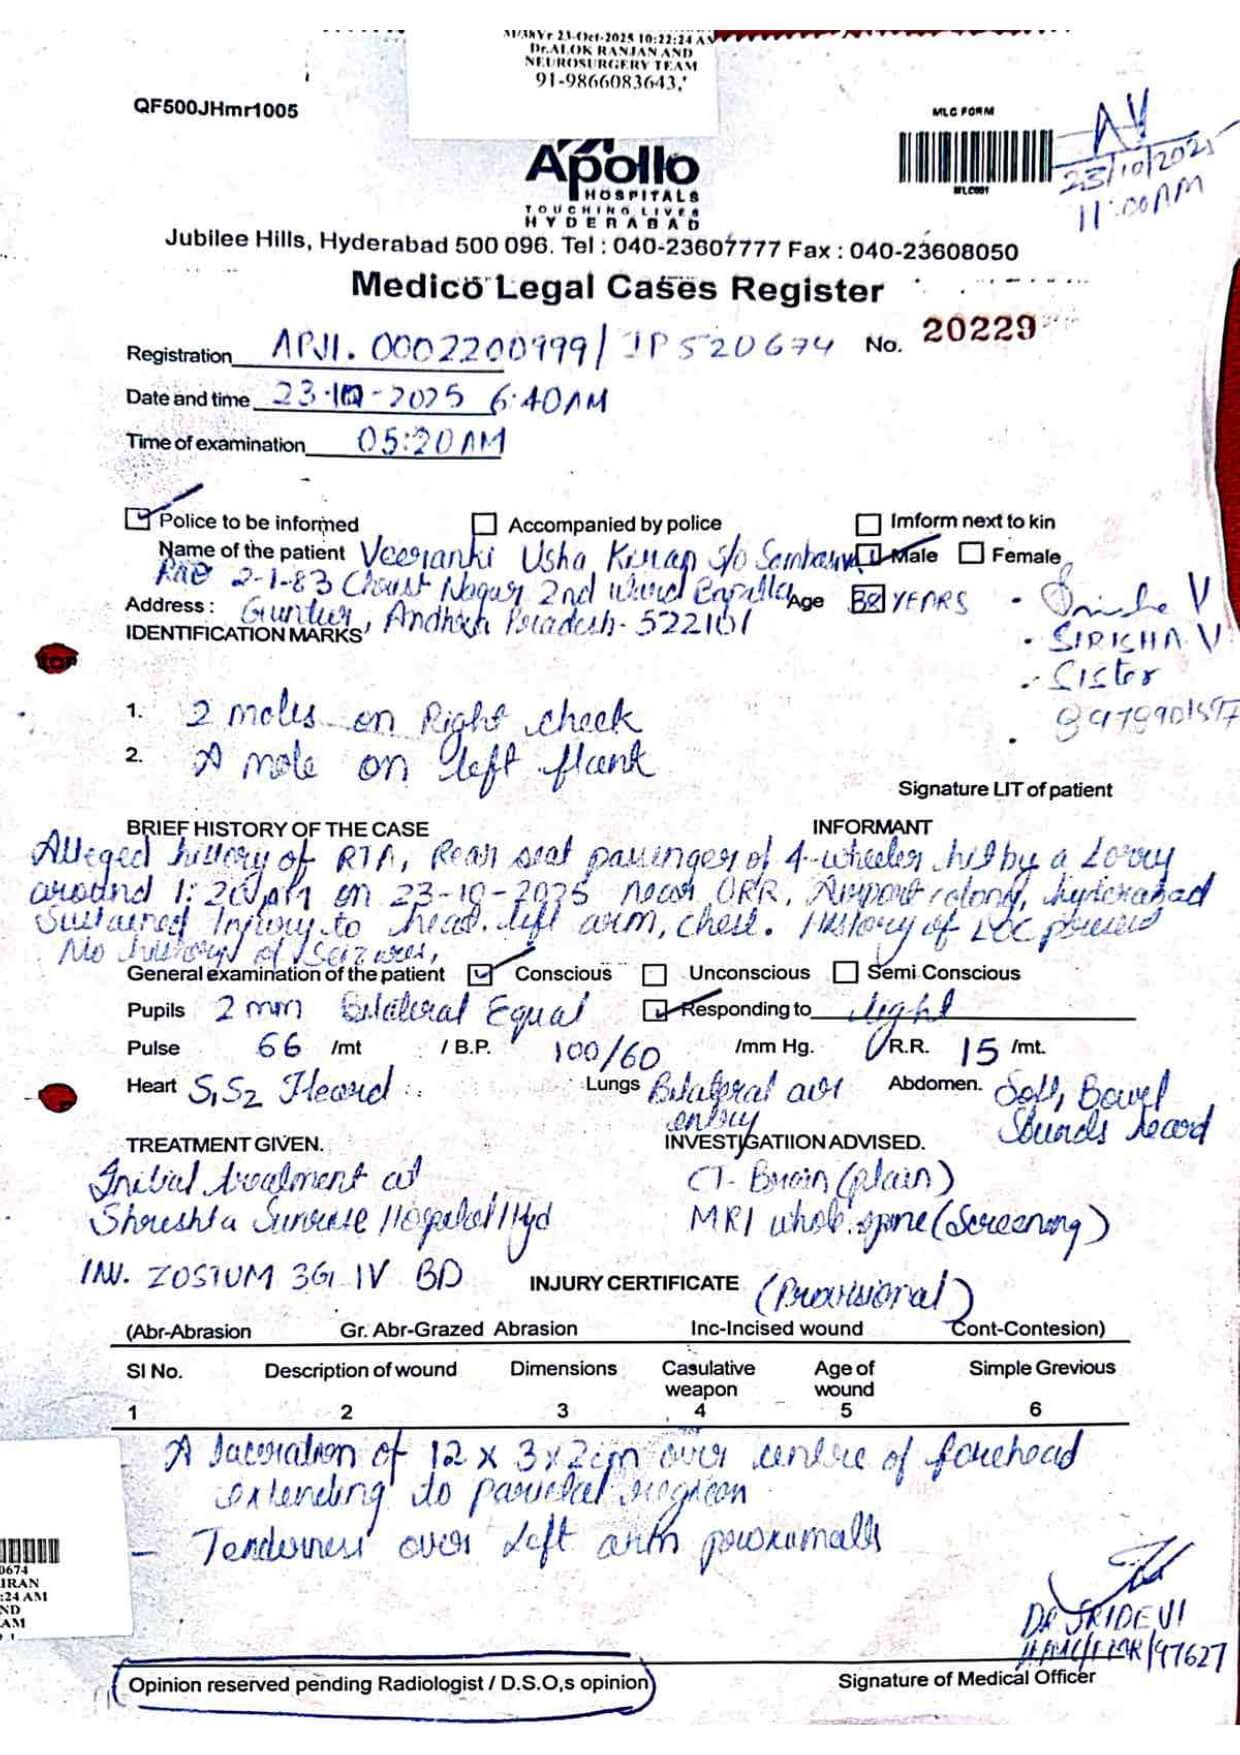 M/38Yr 23-Oct-2025 10:22:24 AM
Dr.ALOK RANJAN AND
NEUROSURGERY TEAM
91-9866083643,'
QF500JHmr1005
MLC FORM
MLC001
AV
23/10/2025
11:00AM
Apollo
HOSPITALS
TOUCHING LIVES
HYDERABAD
Jubilee Hills, Hyderabad 500 096. Tel : 040-23607777 Fax : 040-23608050
Medico Legal Cases Register
Registration APJ1. 0002200999/ IP 520674 No. 20229
Date and time 23-10-2025 6:40AM
Time of examination 05:20AM
Police to be informed Accompanied by police Imform next to kin
Name of the patient Veeranki Usha Kiran S/o Male Female
Rao 2-1-83 Nagar 2nd Ward
Address : Guntur, Andhra Pradesh- 522101 Age 38 YEARS
IDENTIFICATION MARKS
V
SIRISHA. V
Sister
1. 2 moles on Right cheek
2. A mole on left flank
Signature LIT of patient
BRIEF HISTORY OF THE CASE INFORMANT
Alleged history of RTA, Rear seat passenger of 4-wheeler hit by a Lorry
around on 23-10-2025 near ORR, Airport colony, hyderabad
Sustained Injury to head, left arm, chest. History of LOC present
No history of seizures,
General examination of the patient Conscious Unconscious Semi Conscious
Pupils 2 mm Bilateral Equal Responding to light
Pulse 66 /mt / B.P. 100/60 /mm Hg. R.R. 15 /mt.
Heart S1S2 Heard Lungs Bilateral air entry Abdomen. Soft, Bowel Sounds heard
TREATMENT GIVEN. INVESTIGATIION ADVISED.
Initial treatment at CT- Brain (plain)
Shreshta Sunrise Hospital Hyd MRI whole spine (Screening)
INJ. ZOSTUM 3G IV BD INJURY CERTIFICATE (Provisional)
(Abr-Abrasion Gr. Abr-Grazed Abrasion Inc-Incised wound Cont-Contesion)
SI No. Description of wound Dimensions Casulative weapon Age of wound Simple Grevious
1 2 3 4 5 6
- A laceration of 12 x 3 x 2cm over centre of forehead
extending to parietal region
- Tenderness over left arm
0674
IRAN
:24 AM
ND
AM
DR SRIDEVI
/97627
Opinion reserved pending Radiologist / D.S.O,s opinion Signature of Medical Officer